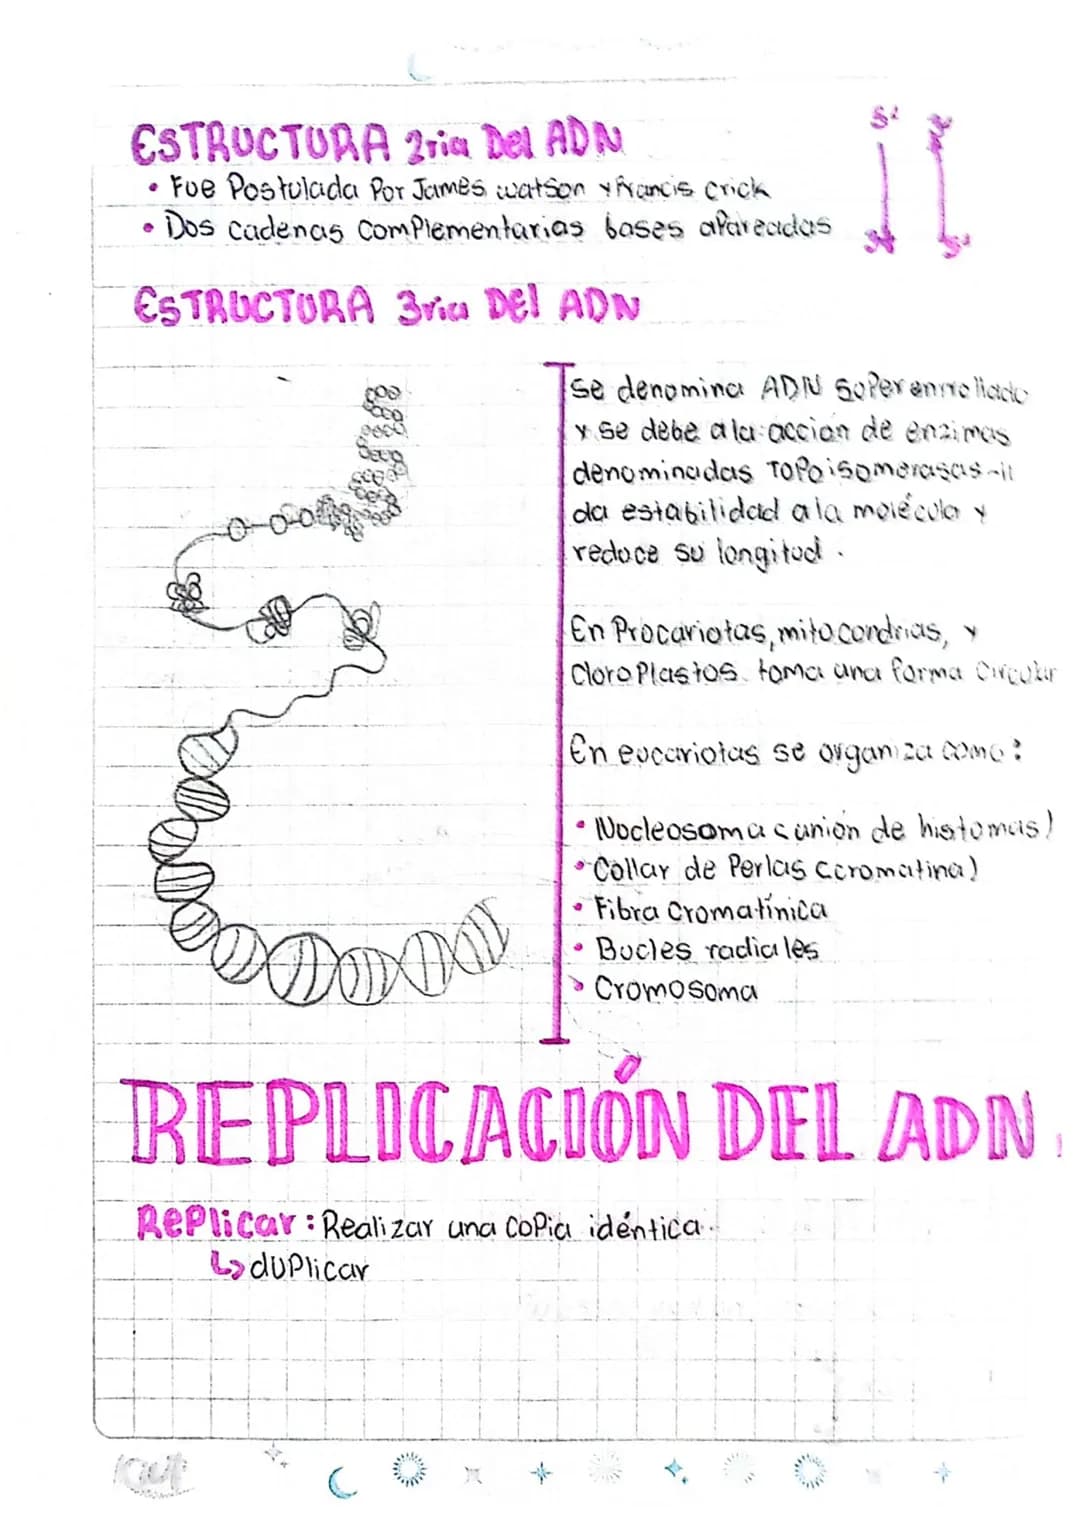 ESTRUCTURA 2ria Del ADN
• Fue Postulada Por James watson y Francis Crick
• Dos cadenas complementarias bases apareadas
5'
3'
3'
5'
ESTRUCTURA 3ria Del ADN
se denomina ADN superenrrollado
y se debe a la accion de enzimas
denominadas Topoisomerasas-II
da estabilidad a la molécula y
reduce su longitud.
En Procariotas, mitocondrias, y
Cloroplastos toma una forma circular
En eucariotas se organiza como:
• Nucleosoma (unión de histomas)
• Collar de Perlas (cromatina)
• Fibra Cromatínica
• Bucles radiales
• Cromosoma
REPLICACIÓN DEL ADN
Replicar: Realizar una copia idéntica.
↳ duplicar